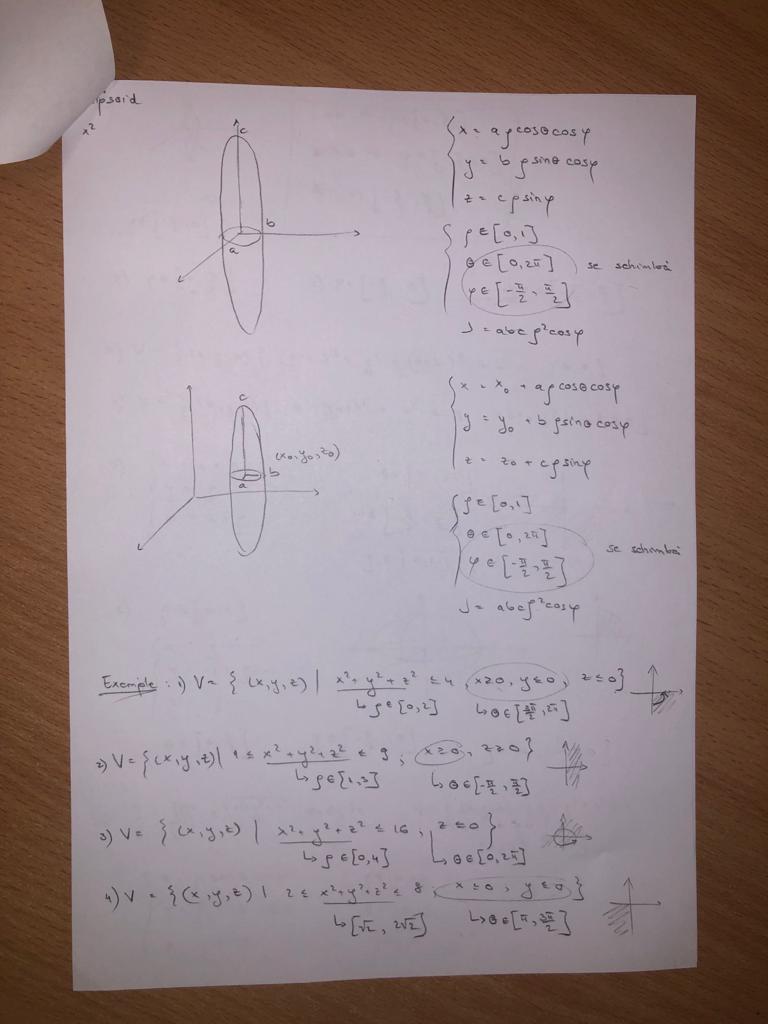 ipsoid
x²
c
b
a
{ x = aρcosθcosφ
y = bρsinθcosφ
z = cρsinφ
{ ρ∈[0,1]
θ∈[0,2π] se schimbă
φ∈[-π/2, π/2]
J = abcρ²cosφ
c
(x₀,y₀,z₀)
b
a
{ x = x₀ + aρcosθcosφ
y = y₀ + bρsinθcosφ
z = z₀ + cρsinφ
{ ρ∈[0,1]
θ∈[0,2π] se schimbă
φ∈[-π/2, π/2]
J = abcρ²cosφ
Exemple: 1) V = { (x,y,z) | x²+y²+z² ≤ 4, x≥0, y≤0, z≤0}
↳ ρ∈[0,2] ↳ θ∈[3π/2, 2π]
2) V = {(x,y,z) | 1 ≤ x²+y²+z² ≤ 9, x≥0, z≥0}
↳ ρ∈[1,3] ↳ θ∈[-π/2, π/2]
3) V = { (x,y,z) | x²+y²+z² ≤ 16, z≤0}
↳ ρ∈[0,4] ↳ θ∈[0,2π]
4) V = {(x,y,z) | 2 ≤ x²+y²+z² ≤ 8, x≤0, y≤0}
↳ [√2, 2√2] ↳ θ∈[π, 3π/2]